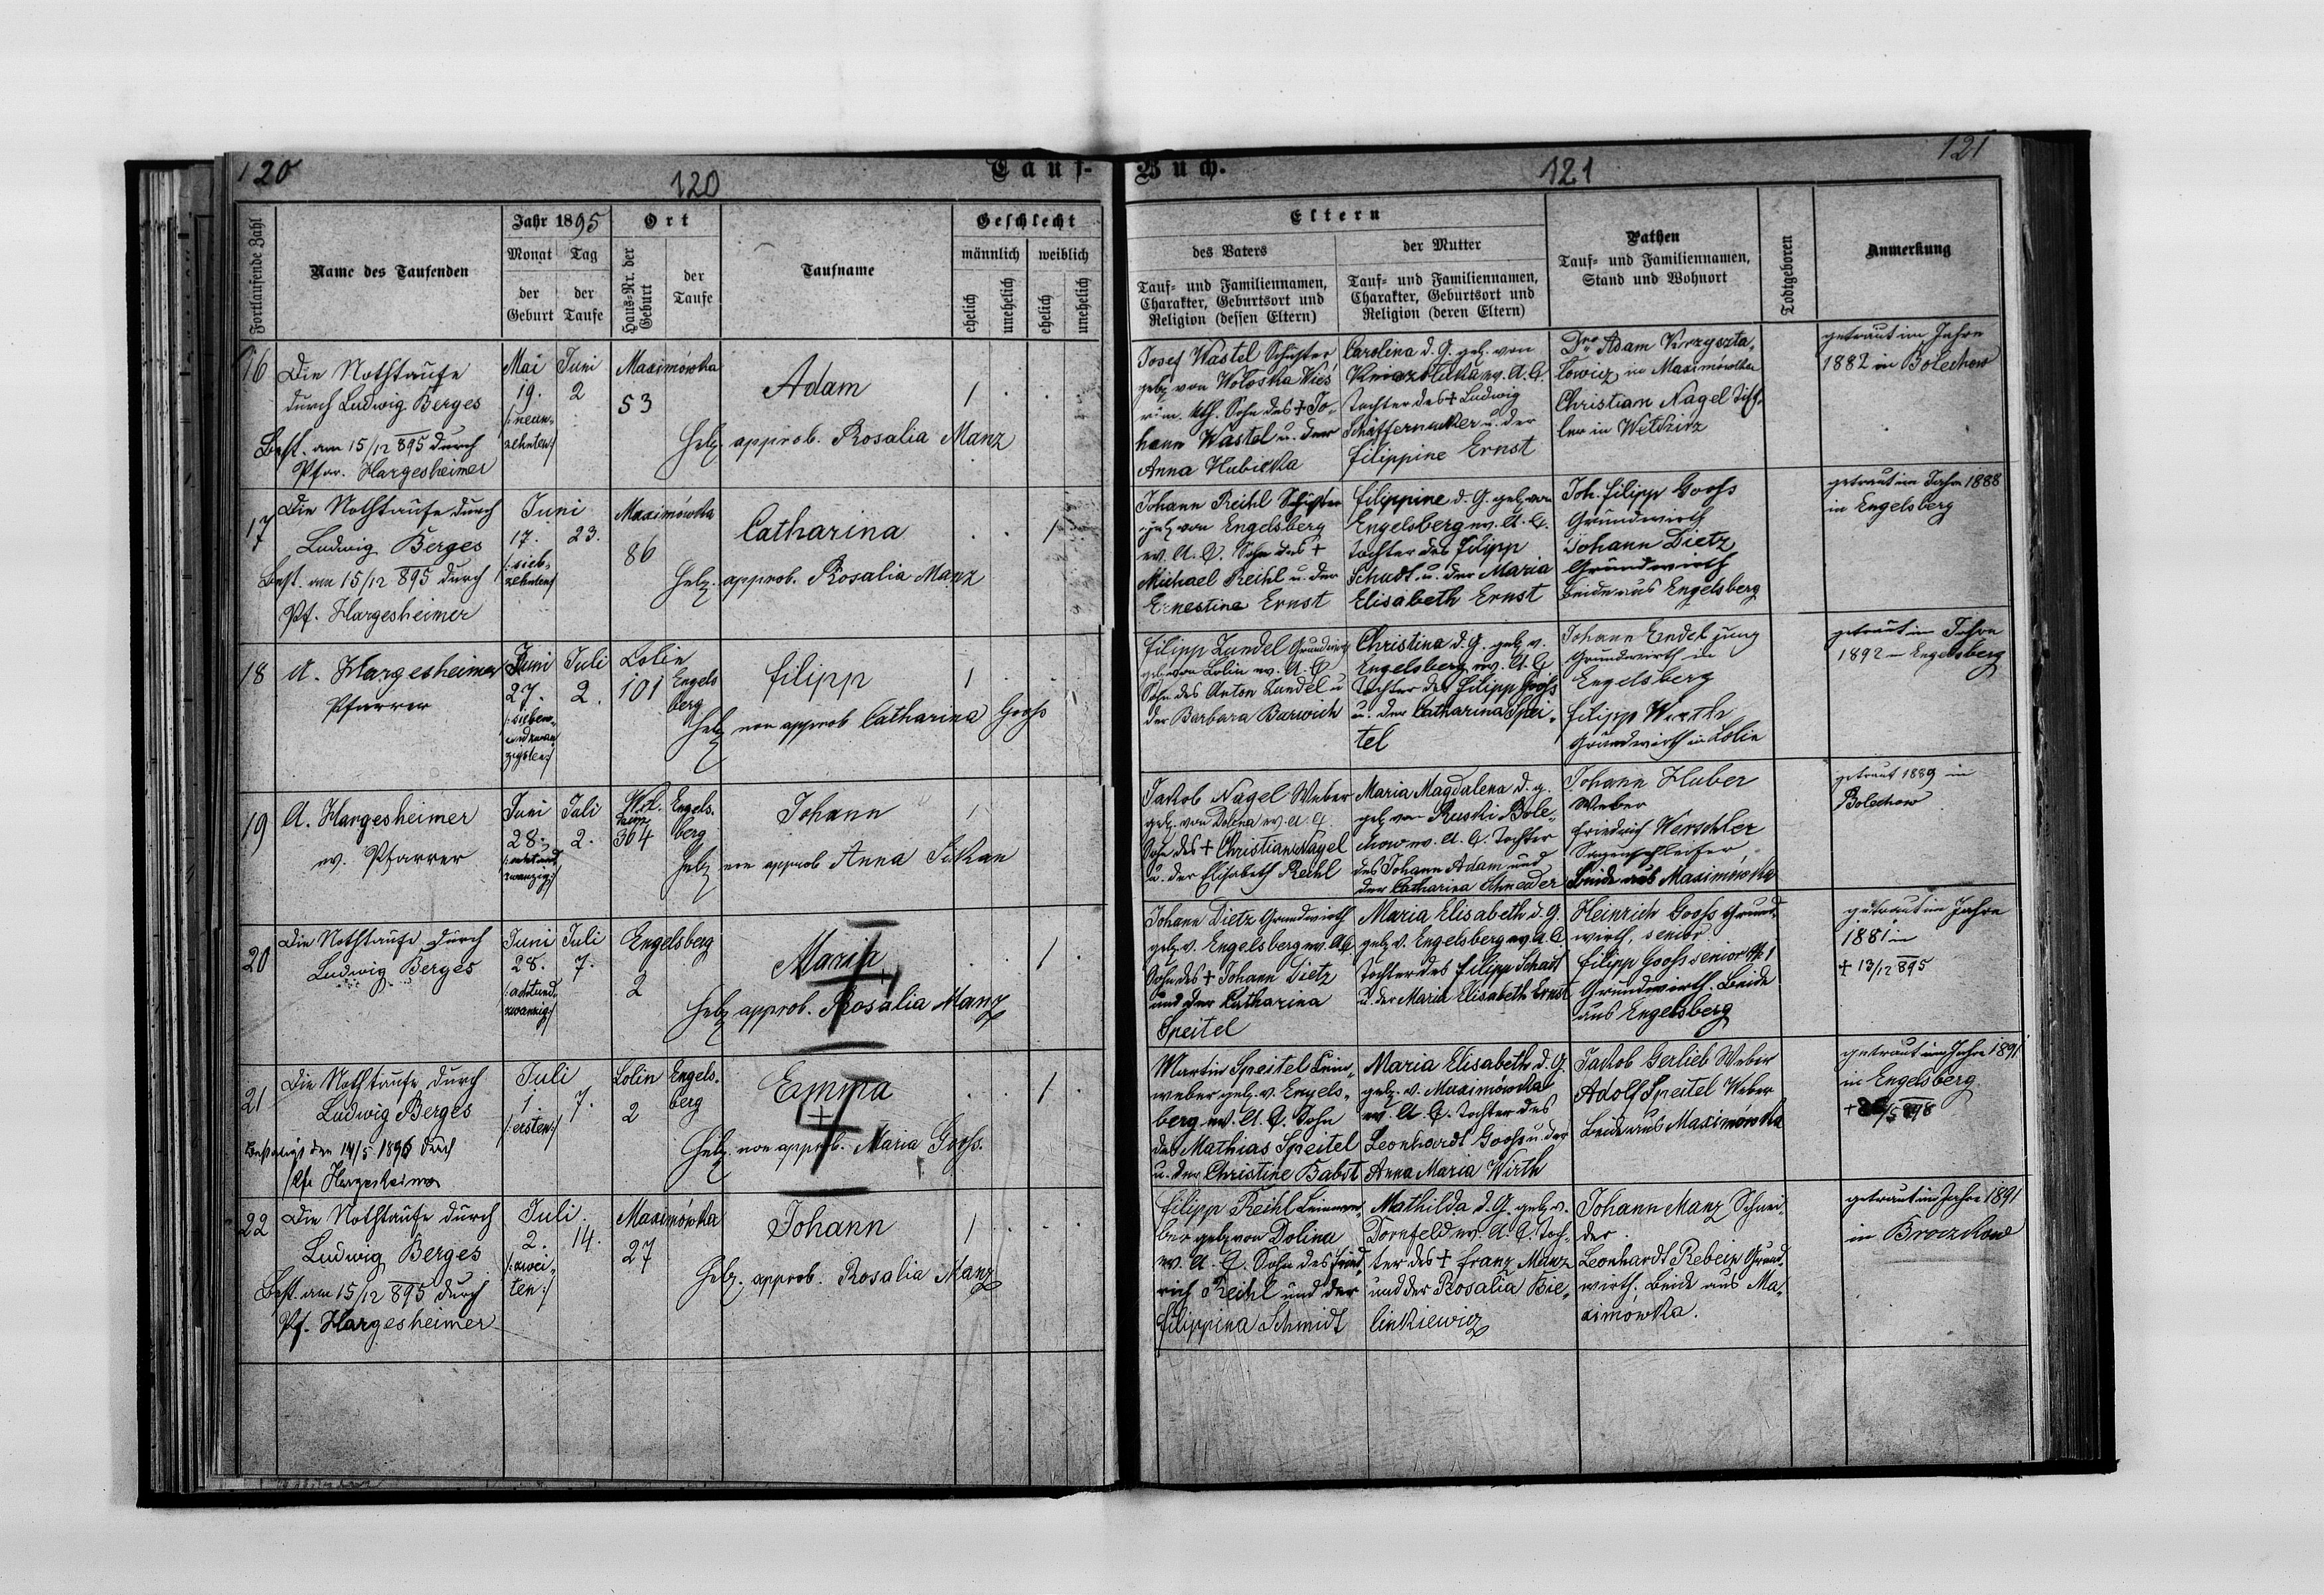 120
120
Tauf-
Fortlaufende Zahl
Name des Taufenden
Jahr 1895
Monat
Tag
der Geburt
der Taufe
Ort
Haus-Nr. der Geburt
der Taufe
Taufname
Geschlecht
männlich
weiblich
ehelich
unehelich
ehelich
unehelich
16
Die Nothtaufe
durch Ludwig Berges
Best. am 15/12 895 durch
Pfar. Hargesheimer
Mai
19.
/:neun-
zehnten:/
Juni
2
Maximówka
53
Adam
1
Heb. approb. Rosalia Manz
17
Die Nothtaufe durch
Ludwig Berges
Best. am 15/12 895 durch
Pf. Hargesheimer
Juni
17.
/:sieb-
zehnten:/
23.
Maximówka
86
Catharina
1
Heb. approb. Rosalia Manz
18
A. Hargesheimer
Pfarrer
Juni
27.
/:sieben-
undzwan-
zigsten:/
Juli
2.
Lolin
101
Engels
berg
Filipp
1
Heb. non approb. Catharina Gooss
19
A. Hargesheimer
ev. Pfarrer
Juni
28.
/:achtund
zwanzig:/
Juli
2.
364
Engels.
berg
Johann
1
Heb. non approb. Anna
20
Die Nothtaufe durch
Ludwig Berges
Juni
28.
/:achtund-
zwanzig:/
Juli
7.
Engelsberg
2
Maria
1
Heb. approb. Rosalia Manz
21
Die Nothtaufe durch
Ludwig Berges
Bestätigt den 14/5 1896 durch
Pfr Hargesheimer
Juli
1.
/:ersten:/
7.
Lolin
2
Engels.
berg
Emma
1
Heb. non approb. Maria Gooss.
22
Die Nothtaufe durch
Ludwig Berges
Best. am 15/12 895 durch
Pf. Hargesheimer
Juli
2.
/:zwei-
ten:/
14.
Maximówka
27
Johann
1
Heb. approb. Rosalia Manz
Buch.
121
121
Eltern
des Vaters
Tauf- und Familiennamen,
Charakter, Geburtsort und
Religion (dessen Eltern)
der Mutter
Tauf- und Familiennamen,
Charakter, Geburtsort und
Religion (deren Eltern)
Pathen
Tauf- und Familiennamen,
Stand und Wohnort
Todtgeboren
Anmerkung
Josef Wastel Schuster
geb. von Wołoska Wieś
röm. kth. Sohn des + Jo-
hann Wastel u. der
Anna Hubicka
Carolina d. G. geb. von
Kniaziołuka ev. A. C.
Tochter des + Ludwig
u. der
Filippine Ernst
Adam Krzyszta-
łowicz in Maximówka
Christian Nagel Tisch
ler in Wełdzirz
getraut im Jahre
1882 in Bolechow
Johann Reihl Schuster
geb. von Engelsberg
ev. A. C. Sohn des +
Michael Reihl u. der
Ernestine Ernst
Filippine d. G. geb. von
Engelsberg ev. A. C.
Tochter des Filipp
Schadt u. der Maria
Elisabeth Ernst
Joh. Filipp Gooss
Grundwirth
Johann Dietz
Grundwirth
beide aus Engelsberg
getraut im Jahre 1888
in Engelsberg
Filipp Zundel Grundwirth
geb. von Lolin ev. A. C.
Sohn des Anton Zundel u
der Barbara Barwich
Christina d. G. geb. v.
Engelsberg ev. A. C
Tochter des Filipp Gooss
u. der Catharina Spei-
tel
Johann Endel jung
Grundwirth in
Engelsberg
Filipp Wirth
Grundwirth in Lolin
getraut im Jahre
1892 in Engelsberg
Jakob Nagel Weber
geb. von Dolina ev. A. C.
Sohn des + Christian Nagel
u. der Elisabeth Reihl
Maria Magdalena d. G.
geb. von Ruski Bole-
chow ev. A. C. Tochter
des Johann Adam und
der Catharina Schneider
Johann Huber
Weber
Friedrich Werschler
Sägenschleifer
Beide aus Maximówka
getraut 1889 in
Bolechow
Johann Dietz Grundwirth
geb. v. Engelsberg ev. A. C
Sohn des + Johann Dietz
und der Katharina
Speitel
Maria Elisabeth d. G.
geb. v. Engelsberg ev. A. C.
Tochter des Filipp Schadt
u. der Maria Elisabeth Ernst
Heinrich Gooss Grund-
wirth, senior
Filipp Gooss senior № 1
Grundwirth. Beide
aus Engelsberg
getraut im Jahre
1881 in
+ 13/12 895
Martin Speitel Lein-
weber geb. v. Engels-
berg ev. A. C. Sohn
des Mathias Speitel
u. der Christine Babst
Maria Elisabeth d. G.
geb. v. Maximówka
ev. A. C. Tochter des
Leonhardt Gooss u. der
Anna Maria Wirth
Jakob Gerlieb Weber
Adolf Speitel Weber
beide aus Maximówka
getraut im Jahre 1891
in Engelsberg
Filipp Reihl Leinwe-
ber geb. von Dolina
ev. A. C. Sohn des Fried-
rich Reihl und der
Filippina Schmidt
Mathilda d. G. geb. v.
Dornfeld ev. A. C. Toch-
ter des + Franz Manz
und der Rosalia Bie-
linkiewicz
Johann Manz Schnei-
der
Leonhardt Rebein Grund-
wirth. Beide aus Ma-
ximówka.
getraut im Jahre 1891
in Broczkow